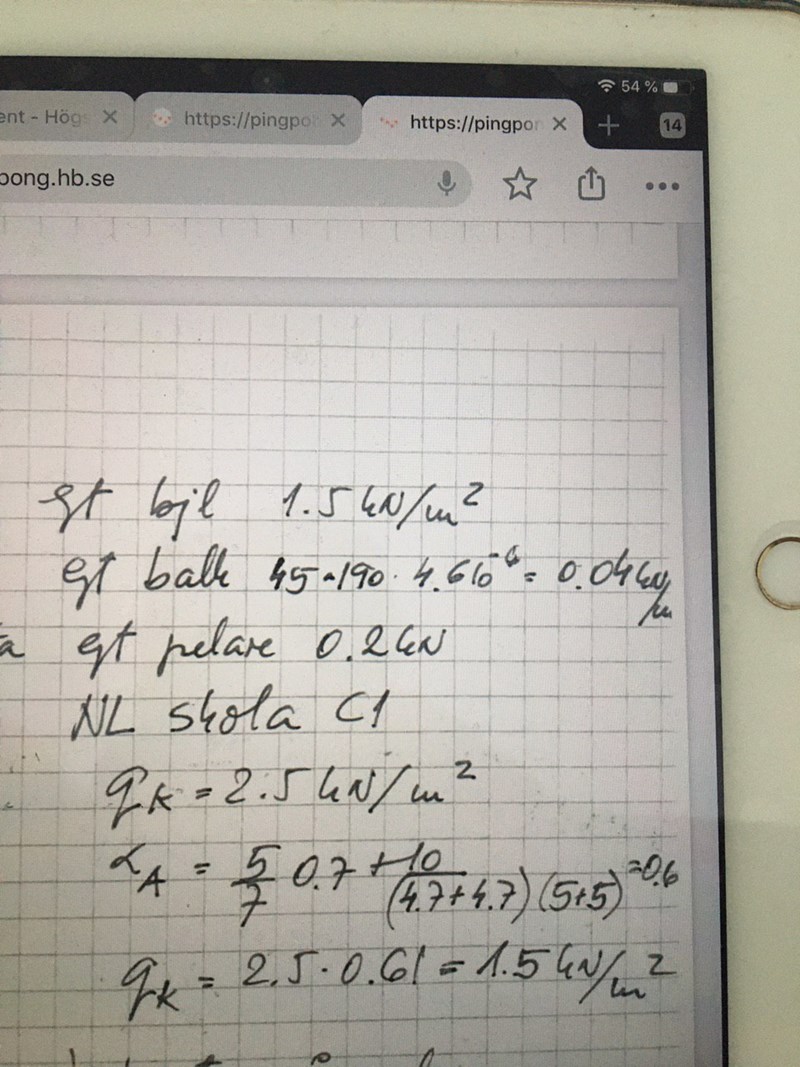 54 %
ent - Högs × https://pingpon × https://pingpon × + 14
pong.hb.se
gt bjl 1.5 kN/m²
gt balk 45·190·4.6 10⁻⁶ = 0.04 kN/m
a gt pelare 0.2 kN
NL skola C1
qk = 2.5 kN/m²
αA = 5/7 0.7 + 10/(4.7+4.7)(5+5) = 0.6
qk = 2.5 · 0.61 = 1.5 kN/m²